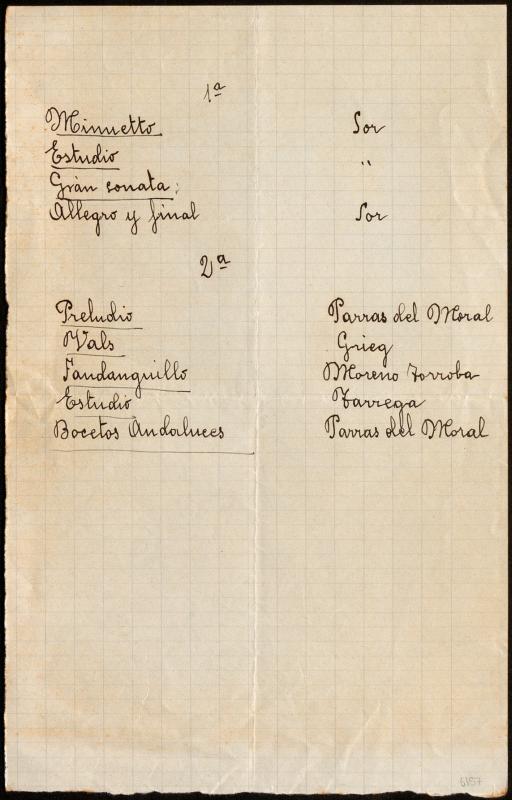 1ª
Minuetto Sor
Estudio "
Gran sonata;
Allegro y final Sor
2ª
Preludio Parras del Moral
Vals Grieg
Fandanguillo Moreno Torroba
Estudio Tarrega
Bocetos Andaluces Parras del Moral
6157